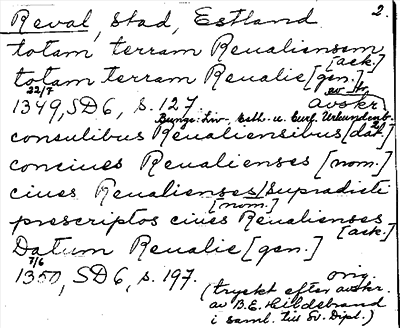 2.
Reval, stad, Estland
totam terram Reualiensem
[ack.]
totam terram Reualie [gen.]
22/7
1349, SD6, s. 127. Avskr.
Bunge: Liv-, Esth- u. Curl. Urkundenb.
consulibus Reualiensibus [dat.]
conciues Reualienses [nom.]
ciues Reualienses supradicti
[nom.]
prescriptos ciues Reualienses
[ack.]
Datum Reualie [gen.]
7/6
1350, SD6, s. 197. orig.
(tryckt efter avskr.
av B.E. Hildebrand
i saml. till Sv. Dipl.)